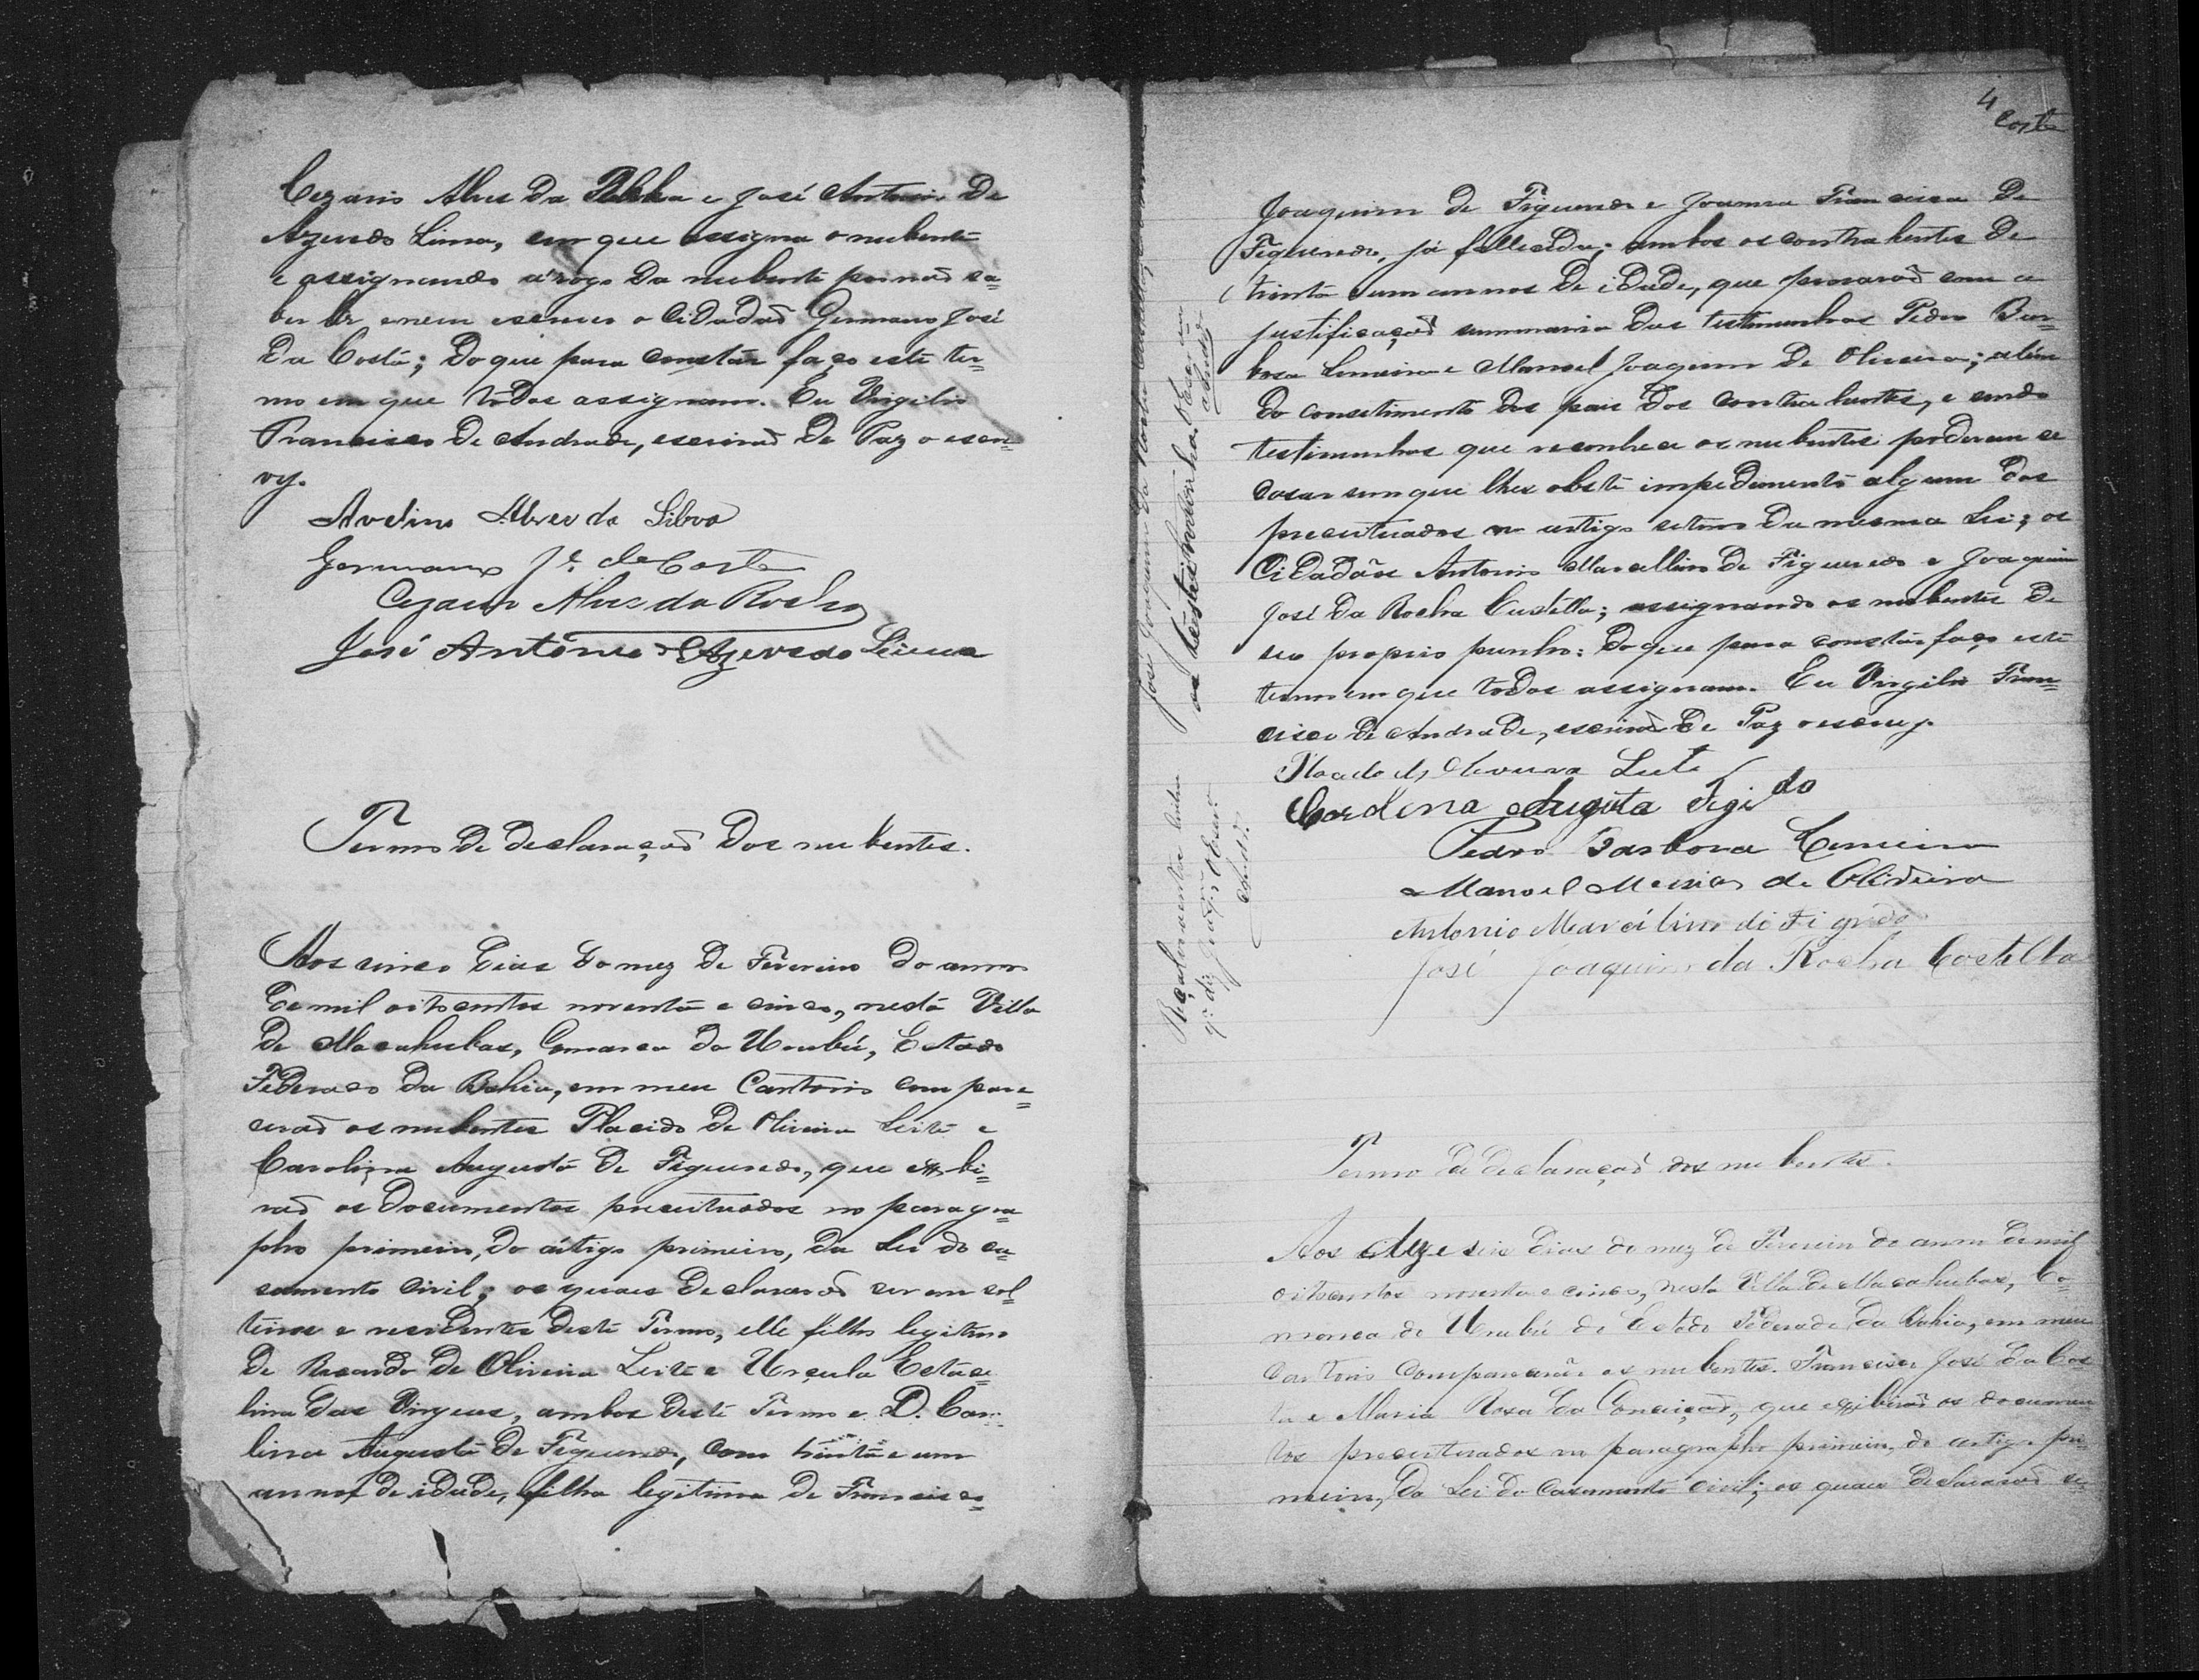 Cezario Alves da Rocha e José Antonio de
Azevedo Lima, em que assigna o nubente
e assignando a rogo da nubente por não sa=
ber ler e nem escrever o Cidadão Germano José
da Costa; do que para constár faço este ter=
mo em que todos assignam. Eu Virgilio
Francisco de Andrade, escrivão de Paz o escre=
vy.
Avelino Alves da Silva
Germano Jé. da Costa
Cezario Alves da Rocha
José Antonio Azevedo Lima
Termo de declaração dos nubentes.
Aos cinco dias do mez de Fevereiro do anno
de mil oitocentos noventa e cinco, nesta Villa
de Macahubas, Comarca do Urubú, Estado
Federado da Bahia, em meu Cartorio compare=
cerão os nubentes Placido de Oliveira Leite e
Carolina Augusta de Figueredo, que exhibi=
rão os documentos preceituados no paragra=
pho primeiro, do artigo primeiro, da Lei do ca=
samento civil; os quaes declararão serem sol=
teiros e residentes deste Termo, elle filho legitimo
de Ricardo de Oliveira Leite e Urçula
das Virgens, ambos deste Termo e D. Caro=
lina Augusta de Figueredo, com trinta e um
annos de idade, filha legitima de Francisco
4
Costa
Joaquim de Figueredo e Joanna Francisca de
Figueredo, já fallecida; ambos os contrahentes de
trinta e um annos de idade, que provarão com a
justificação summaria das testimunhas Pedro Bar=
bosa e Manoel Joaquim de Oliveira; além
do consetimento dos pais dos contrahentes, e sendo
testimunhas que reconhece os nubentes poderem se
casar sem que lhes obste impedimento algum dos
preceituados no artigo setimo da mesma Lei; os
Cidadãos Antonio Marcellino de Figueredo e Joaquim
José da Rocha Castella; assignando os nubentes de
seo proprio punho: do que para constár faço este
termo em que todos assignam. Eu Virgilio Fran=
cisco de Andrade, escrivão de Paz o escrevy.
Placido de Oliveira Leite
Augusta Figdo
Pedro Barbosa
Manoel Messias de Oliveira
Antonio Marcilino de Figrdo
José Joaquim da Rocha Castella
José Joaquim da Rocha
as testimunhas. O Escrivão
Andrade
Resalvo a entrelinha
q. diz O Escrivão
Andrade
Termo de declaração dos nubentes.
Aos dezeseis dias do mez de Fevereiro do anno de mil
oitocentos noventa e cinco, nesta Villa de Macahubas, Co=
marca do Urubú do Estado Federado da Bahia, em meu
Cartorio comparecerão os nubentes Francisco José da Cos=
ta e Maria Rosa da Conceição, que exhibirão os documen
tos preceituados no paragrapho primeiro, do artigo pri=
meiro, da Lei do Casamento Civil; os quaes declararão se=